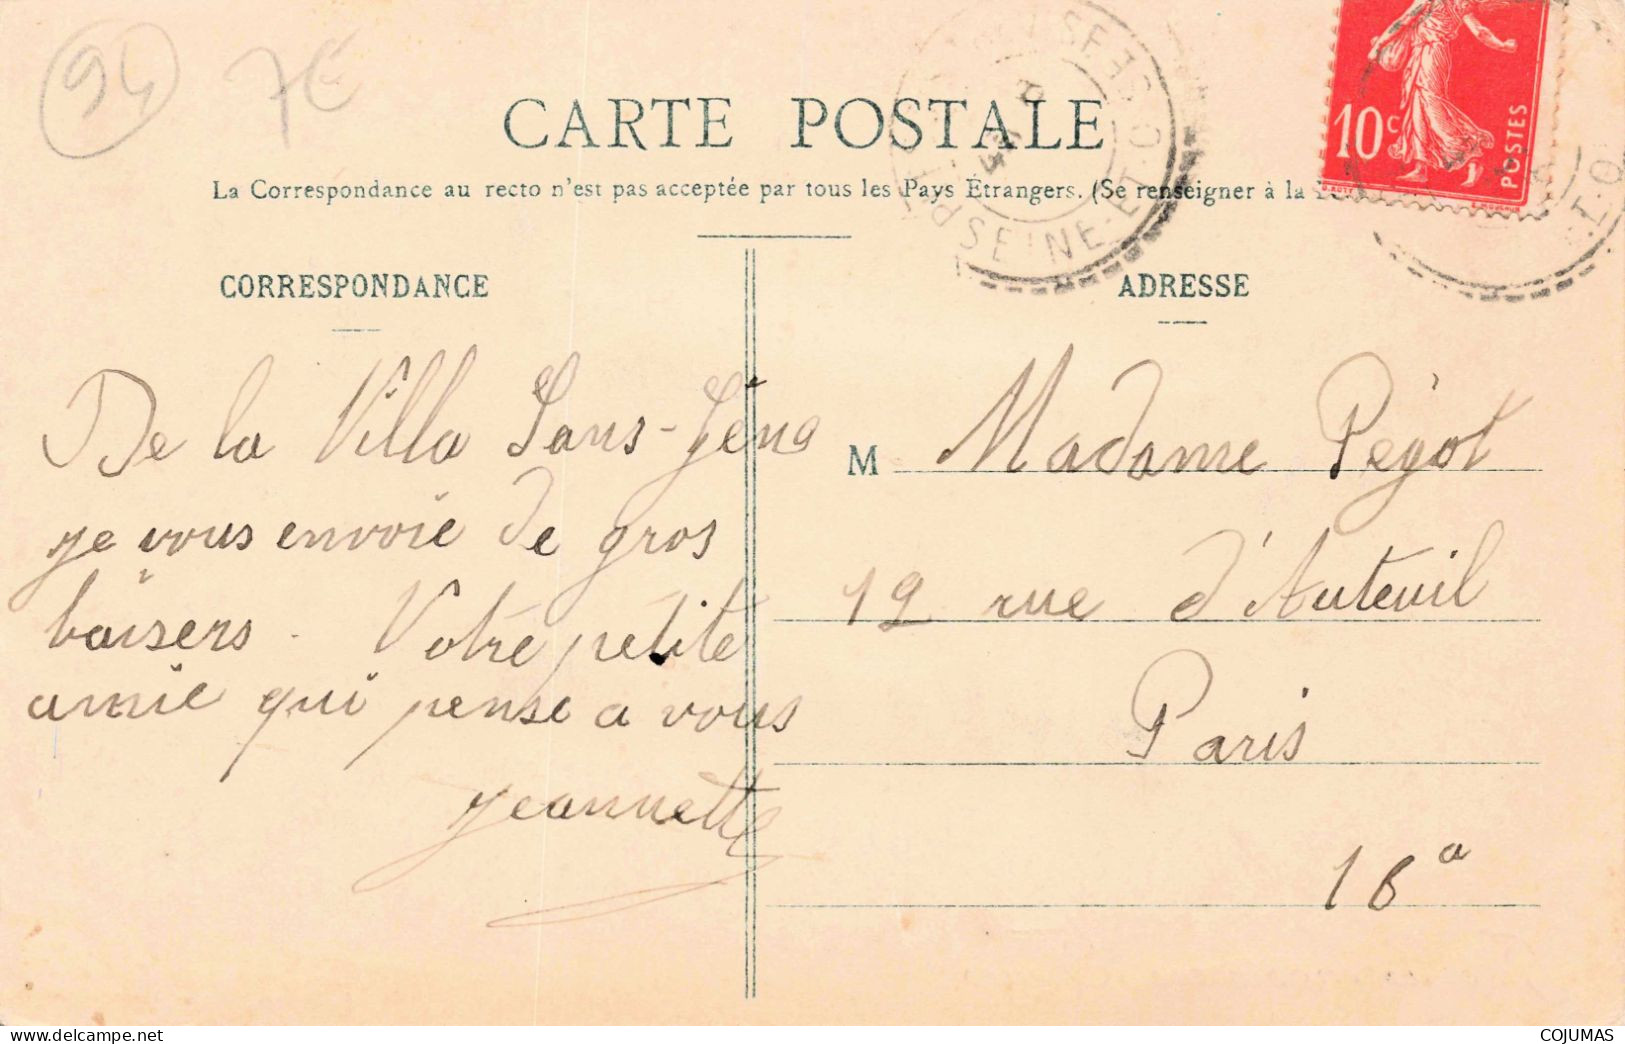 94 7€
CARTE POSTALE
La Correspondance au recto n'est pas acceptée par tous les Pays Étrangers. (Se renseigner à la
10c
POSTES
SEINE-ET-O
CORRESPONDANCE
De la Villa Sans-Gêne
je vous envoie de gros
baisers. Votre petite
amie qui pense a vous
Jeannette
ADRESSE
M Madame Pégot
12 rue d'Auteuil
Paris
16a
COJUMAS